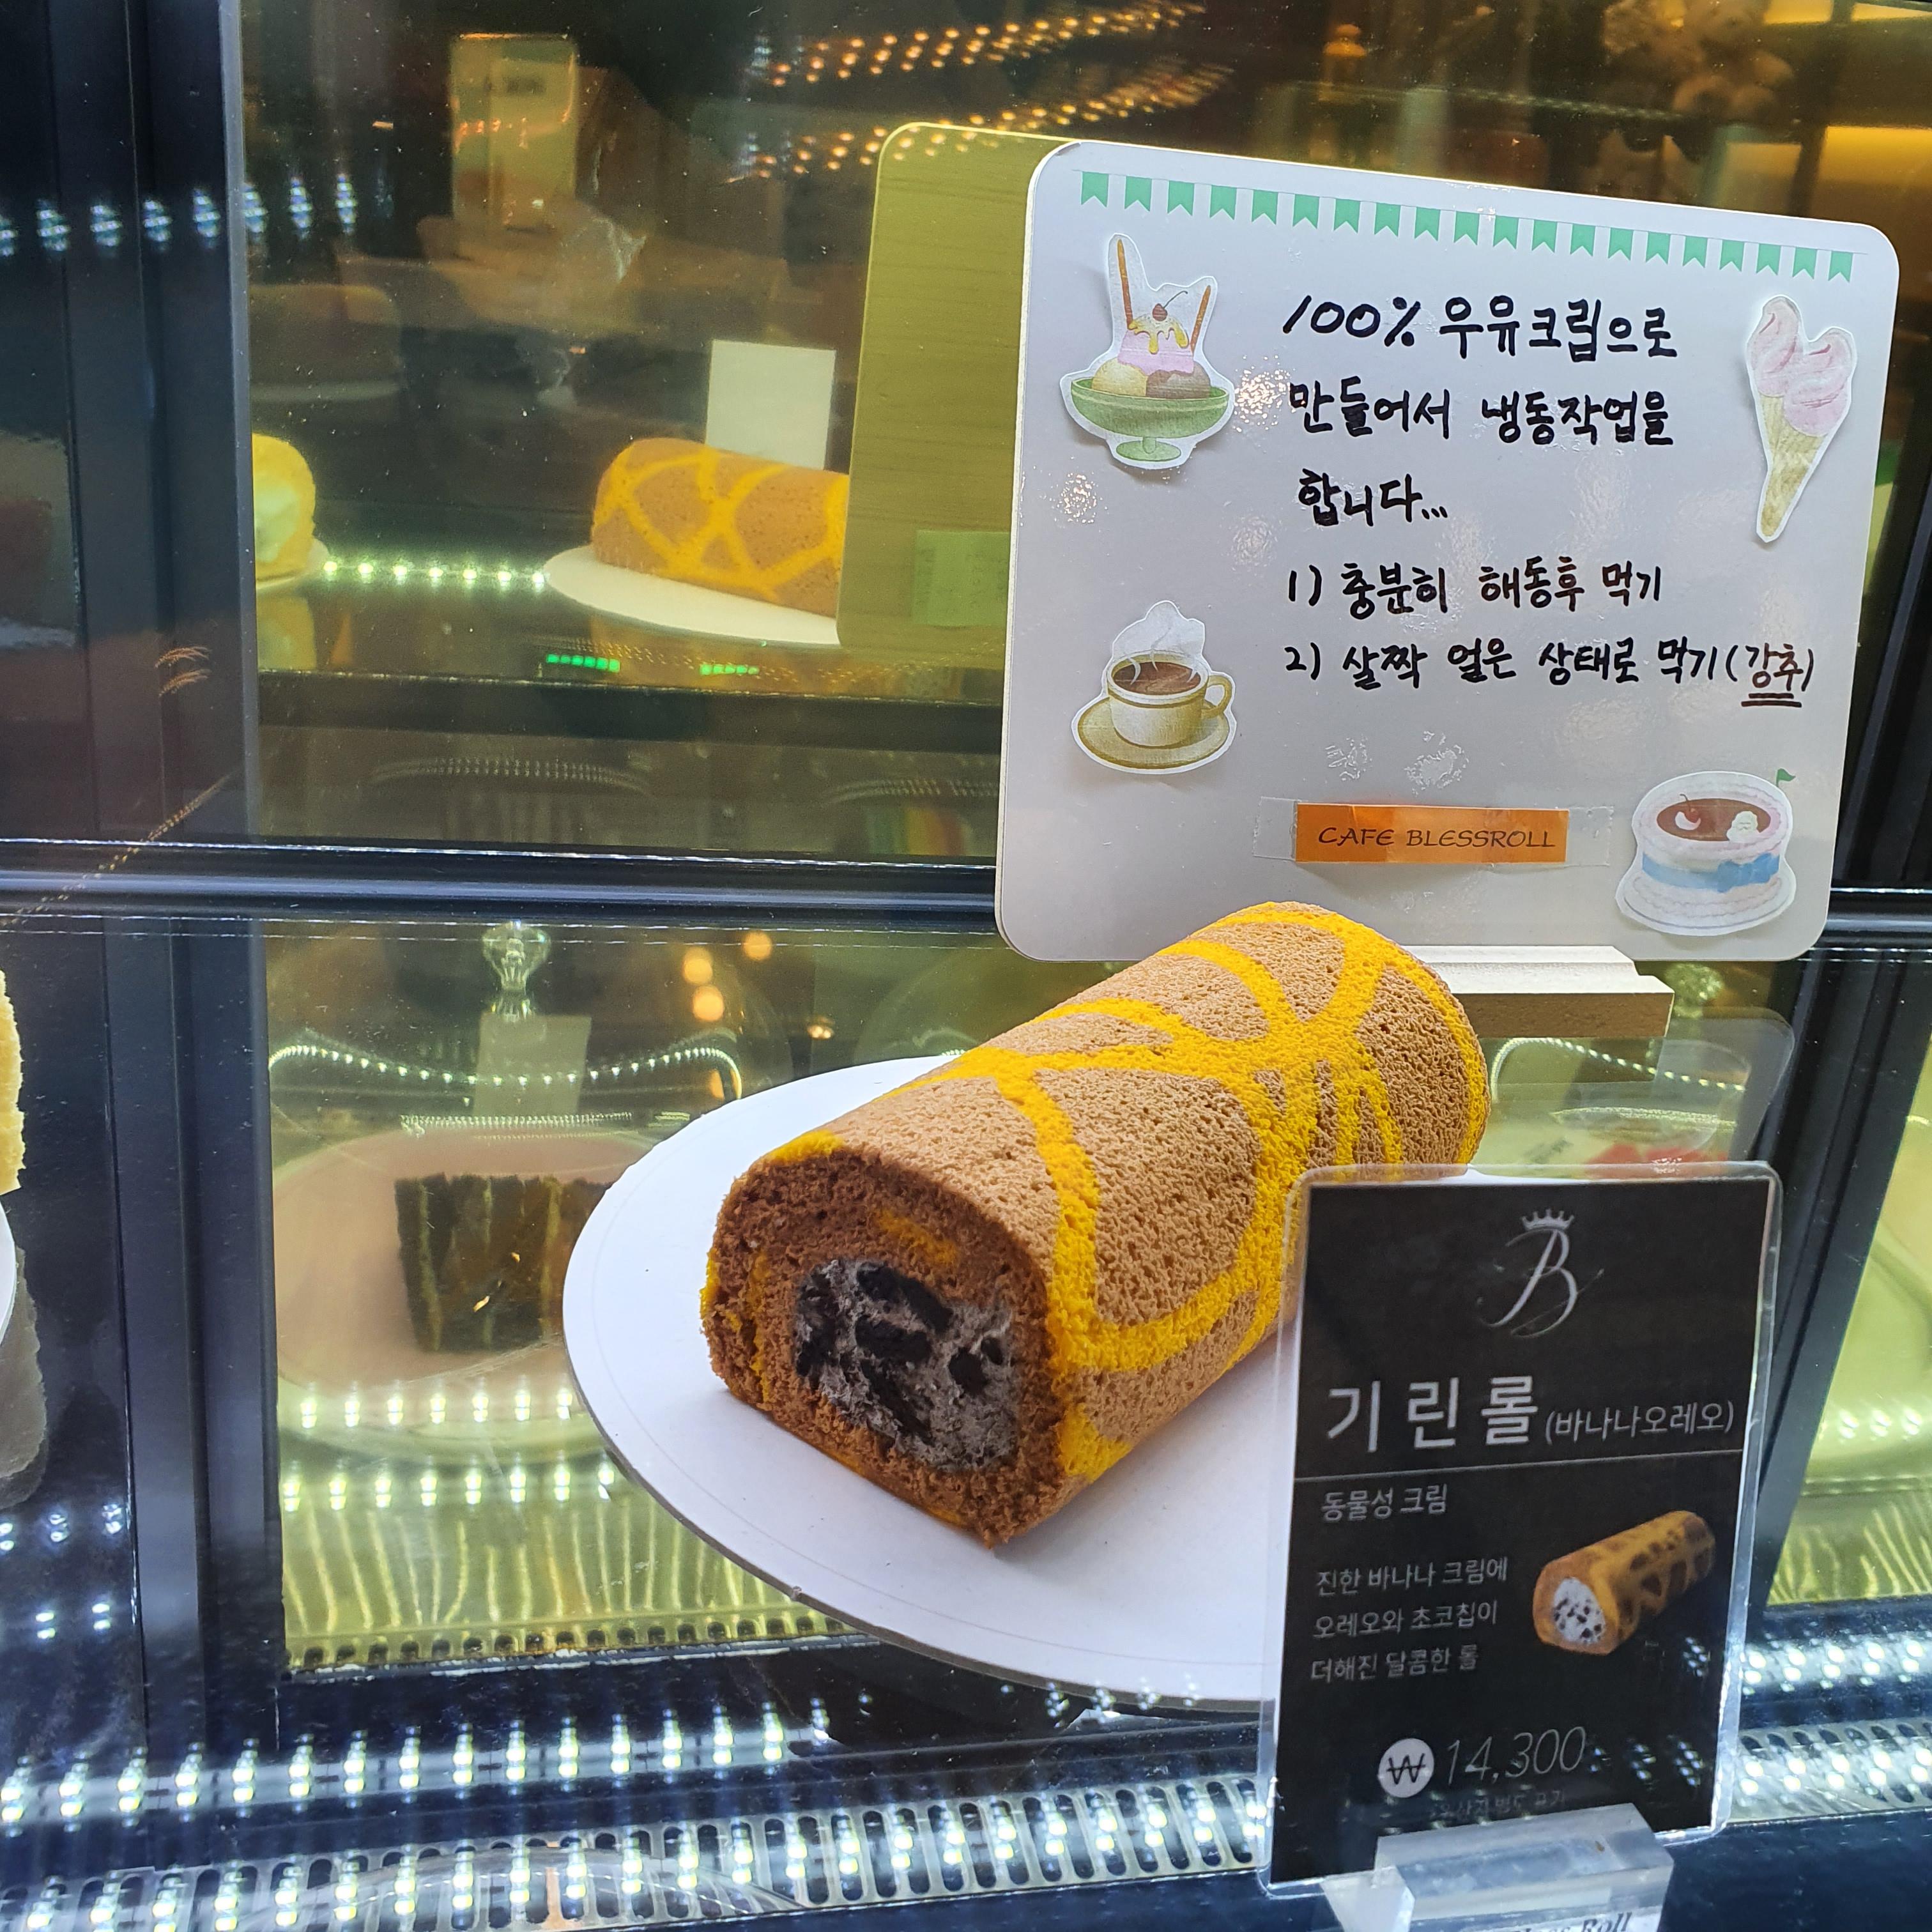 100% 우유크림으로
만들어서 냉동작업을
합니다...
1) 충분히 해동후 먹기
2) 살짝 얼은 상태로 먹기(강추)
CAFE BLESSROLL
B
기린롤(바나나오레오)
동물성 크림
진한 바나나 크림에
오레오와 초코칩이
더해진 달콤한 롤
₩14,300
Roll